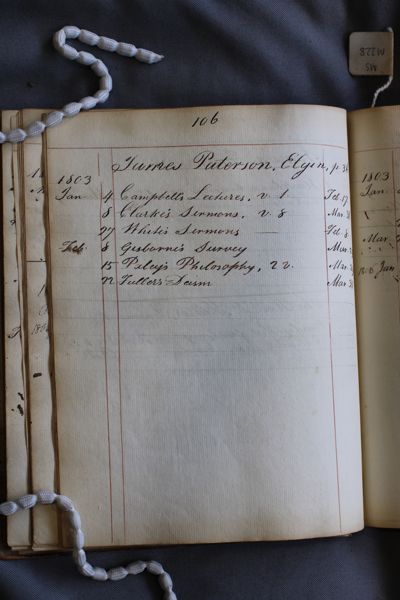 MS
M 228
106
James Paterson, Elgin, p. 3
1803
Jan 4 Campbell's Lectures, v. 1 Feb. 17
8 Clarke's Sermons, v. 8 Mar. 3
27 White's Sermons — Feb. 8
Feb. 8 Gisborne's Survey Mar.
15 Paley's Philosophy, 2 v. Mar.
22 Fuller's Deism Mar. 3
1803
Jan.
Mar.
Jan